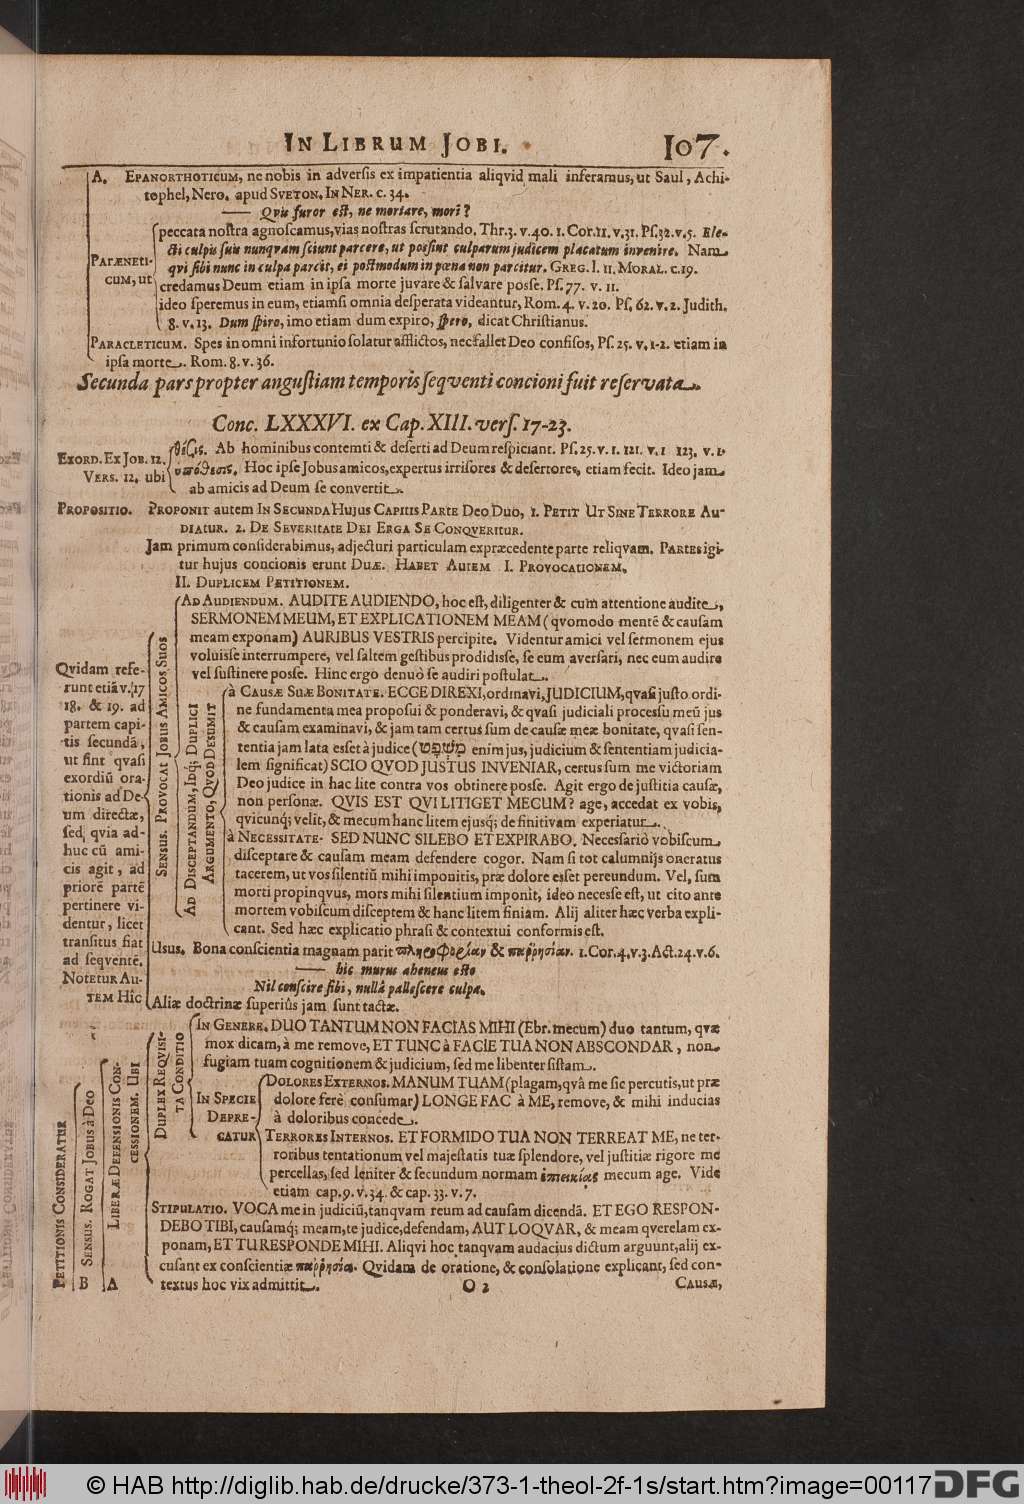 IN LIBRUM JOBI. 107.
A. EPANORTHOTICUM, ne nobis in adversis ex impatientia aliqvid mali inferamus, ut Saul, Achi-
tophel, Nero. apud SVETON. IN NER. c. 34.
—— Qvis furor est, ne moriare, mori?
PARÆNETI-
CUM, ut
peccata nostra agnoscamus, vias nostras scrutando, Thr. 3. v. 40. 1. Cor. 11. v. 31. Ps. 32. v. 5. Ele-
cti culpis suis nunqvam sciunt parcere, ut possint culparum judicem placatum invenire. Nam
qvi sibi nunc in culpa parcit, ei postmodum in pœna non parcitur. GREG. l. 11. MORAL. c. 19.
credamus Deum etiam in ipsa morte juvare & salvare posse. Ps. 77. v. 11.
ideo speremus in eum, etiamsi omnia desperata videantur, Rom. 4. v. 20. Ps. 62. v. 2. Judith.
8. v. 13. Dum spiro, imo etiam dum expiro, spero, dicat Christianus.
PARACLETICUM. Spes in omni infortunio solatur afflictos, nec fallet Deo confisos, Ps. 25. v. 1-2. etiam in
ipsa morte. Rom. 8. v. 36.
Secunda pars propter angustiam temporis seqventi concioni fuit reservata.
Conc. LXXXVI. ex Cap. XIII. vers. 17-23.
EXORD. EX JOB. 12.
VERS. 12. ubi
θέσις. Ab hominibus contemti & deserti ad Deum respiciant. Ps. 25. v. 1. 121. v. 1 123. v. 1.
ὑπόθεσις. Hoc ipse Jobus amicos, expertus irrisores & desertores, etiam fecit. Ideo jam
ab amicis ad Deum se convertit.
PROPOSITIO. PROPONIT autem IN SECUNDA HUJUS CAPITIS PARTE DEO DUO, 1. PETIT UT SINE TERRORE AU-
DIATUR. 2. DE SEVERITATE DEI ERGA SE CONQVERITUR.
Jam primum considerabimus, adjecturi particulam ex præcedente parte reliqvam. PARTES igi-
tur hujus concionis erunt DUÆ. HABET AUTEM I. PROVOCATIONEM.
II. DUPLICEM PETITIONEM.
Qvidam refe-
runt etiā v. 17
18. & 19. ad
partem capi-
tis secundā,
ut sint qvasi
exordiū ora-
tionis ad De-
um directæ,
sed qvia ad-
huc cū ami-
cis agit, ad
priorē partē
pertinere vi-
dentur, licet
transitus fiat
ad seqventē.
NOTETUR AU-
TEM HÎC
SENSUS. PROVOCAT JOBUS AMICOS SUOS
AD AUDIENDUM. AUDITE AUDIENDO, hoc est, diligenter & cum attentione audite,
SERMONEM MEUM, ET EXPLICATIONEM MEAM (qvomodo mentē & causam
meam exponam) AURIBUS VESTRIS percipite. Videntur amici vel sermonem ejus
voluisse interrumpere, vel saltem gestibus prodidisse, se eum aversari, nec eum audire
vel sustinere posse. Hinc ergo denuò se audiri postulat.
AD DISCEPTANDUM, IDQ; DUPLICI
ARGUMENTO, QVOD DESUMIT
à CAUSÆ SUÆ BONITATE. ECCE DIREXI, ordinavi, JUDICIUM, qvasi justo ordi-
ne fundamenta mea proposui & ponderavi, & qvasi judiciali processu meū jus
& causam examinavi, & jam tam certus sum de causæ meæ bonitate, qvasi sen-
tentia jam lata esset à judice (מִשְׁפָּט enim jus, judicium & sententiam judicia-
lem significat) SCIO QVOD JUSTUS INVENIAR, certus sum me victoriam
Deo judice in hac lite contra vos obtinere posse. Agit ergo de justitia causæ,
non personæ. QVIS EST QVI LITIGET MECUM? age, accedat ex vobis,
qvicunq; velit, & mecum hanc litem ejusq; definitivam experiatur.
à NECESSITATE. SED NUNC SILEBO ET EXPIRABO. Necessariò vobiscum
disceptare & causam meam defendere cogor. Nam si tot calumnijs oneratus
tacerem, ut vos silentiū mihi imponitis, præ dolore esset pereundum. Vel, sum
morti propinqvus, mors mihi silentium imponit, ideo necesse est, ut cito ante
mortem vobiscum disceptem & hanc litem finiam. Alij aliter hæc verba expli-
cant. Sed hæc explicatio phrasi & contextui conformis est.
USUS. Bona conscientia magnam parit πληροφορίαν & παῤῥησίαν. 1. Cor. 4. v. 3. Act. 24. v. 6.
—— hic murus aheneus esto
Nil conscire sibi, nullâ pallescere culpa.
Aliæ doctrinæ superiùs jam sunt tactæ.
PETITIONIS CONSIDERATUR
SENSUS. ROGAT JOBUS à DEO
LIBERÆ DEFENSIONIS CON-
CESSIONEM. UBI
DUPLEX REQVISI-
TA CONDITIO
IN GENERE. DUO TANTUM NON FACIAS MIHI (Ebr. mecum) duo tantum, qvæ
mox dicam, à me remove, ET TUNC à FACIE TUA NON ABSCONDAR, non
fugiam tuam cognitionem & judicium, sed me libenter sistam.
IN SPECIE
DEPRE-
CATUR
DOLORES EXTERNOS. MANUM TUAM (plagam, qvâ me sic percutis, ut præ
dolore ferè consumar) LONGE FAC à ME, remove, & mihi inducias
à doloribus concede.
TERRORES INTERNOS. ET FORMIDO TUA NON TERREAT ME, ne ter-
roribus tentationum vel majestatis tuæ splendore, vel justitiæ rigore me
percellas, sed leniter & secundum normam ἐπιεικίας mecum age. Vide
etiam cap. 9. v. 34. & cap. 33. v. 7.
STIPULATIO. VOCA me in judiciū, tanqvam reum ad causam dicendā. ET EGO RESPON-
DEBO TIBI, causamq; meam, te judice, defendam, AUT LOQVAR, & meam qverelam ex-
ponam, ET TU RESPONDE MIHI. Aliqvi hoc tanqvam audacius dictum arguunt, alij ex-
cusant ex conscientiæ παῤῥησία. Qvidam de oratione, & consolatione explicant, sed con-
textus hoc vix admittit.
B A
O 2 CAUSÆ,
© HAB http://diglib.hab.de/drucke/373-1-theol-2f-1s/start.htm?image=00117 DFG